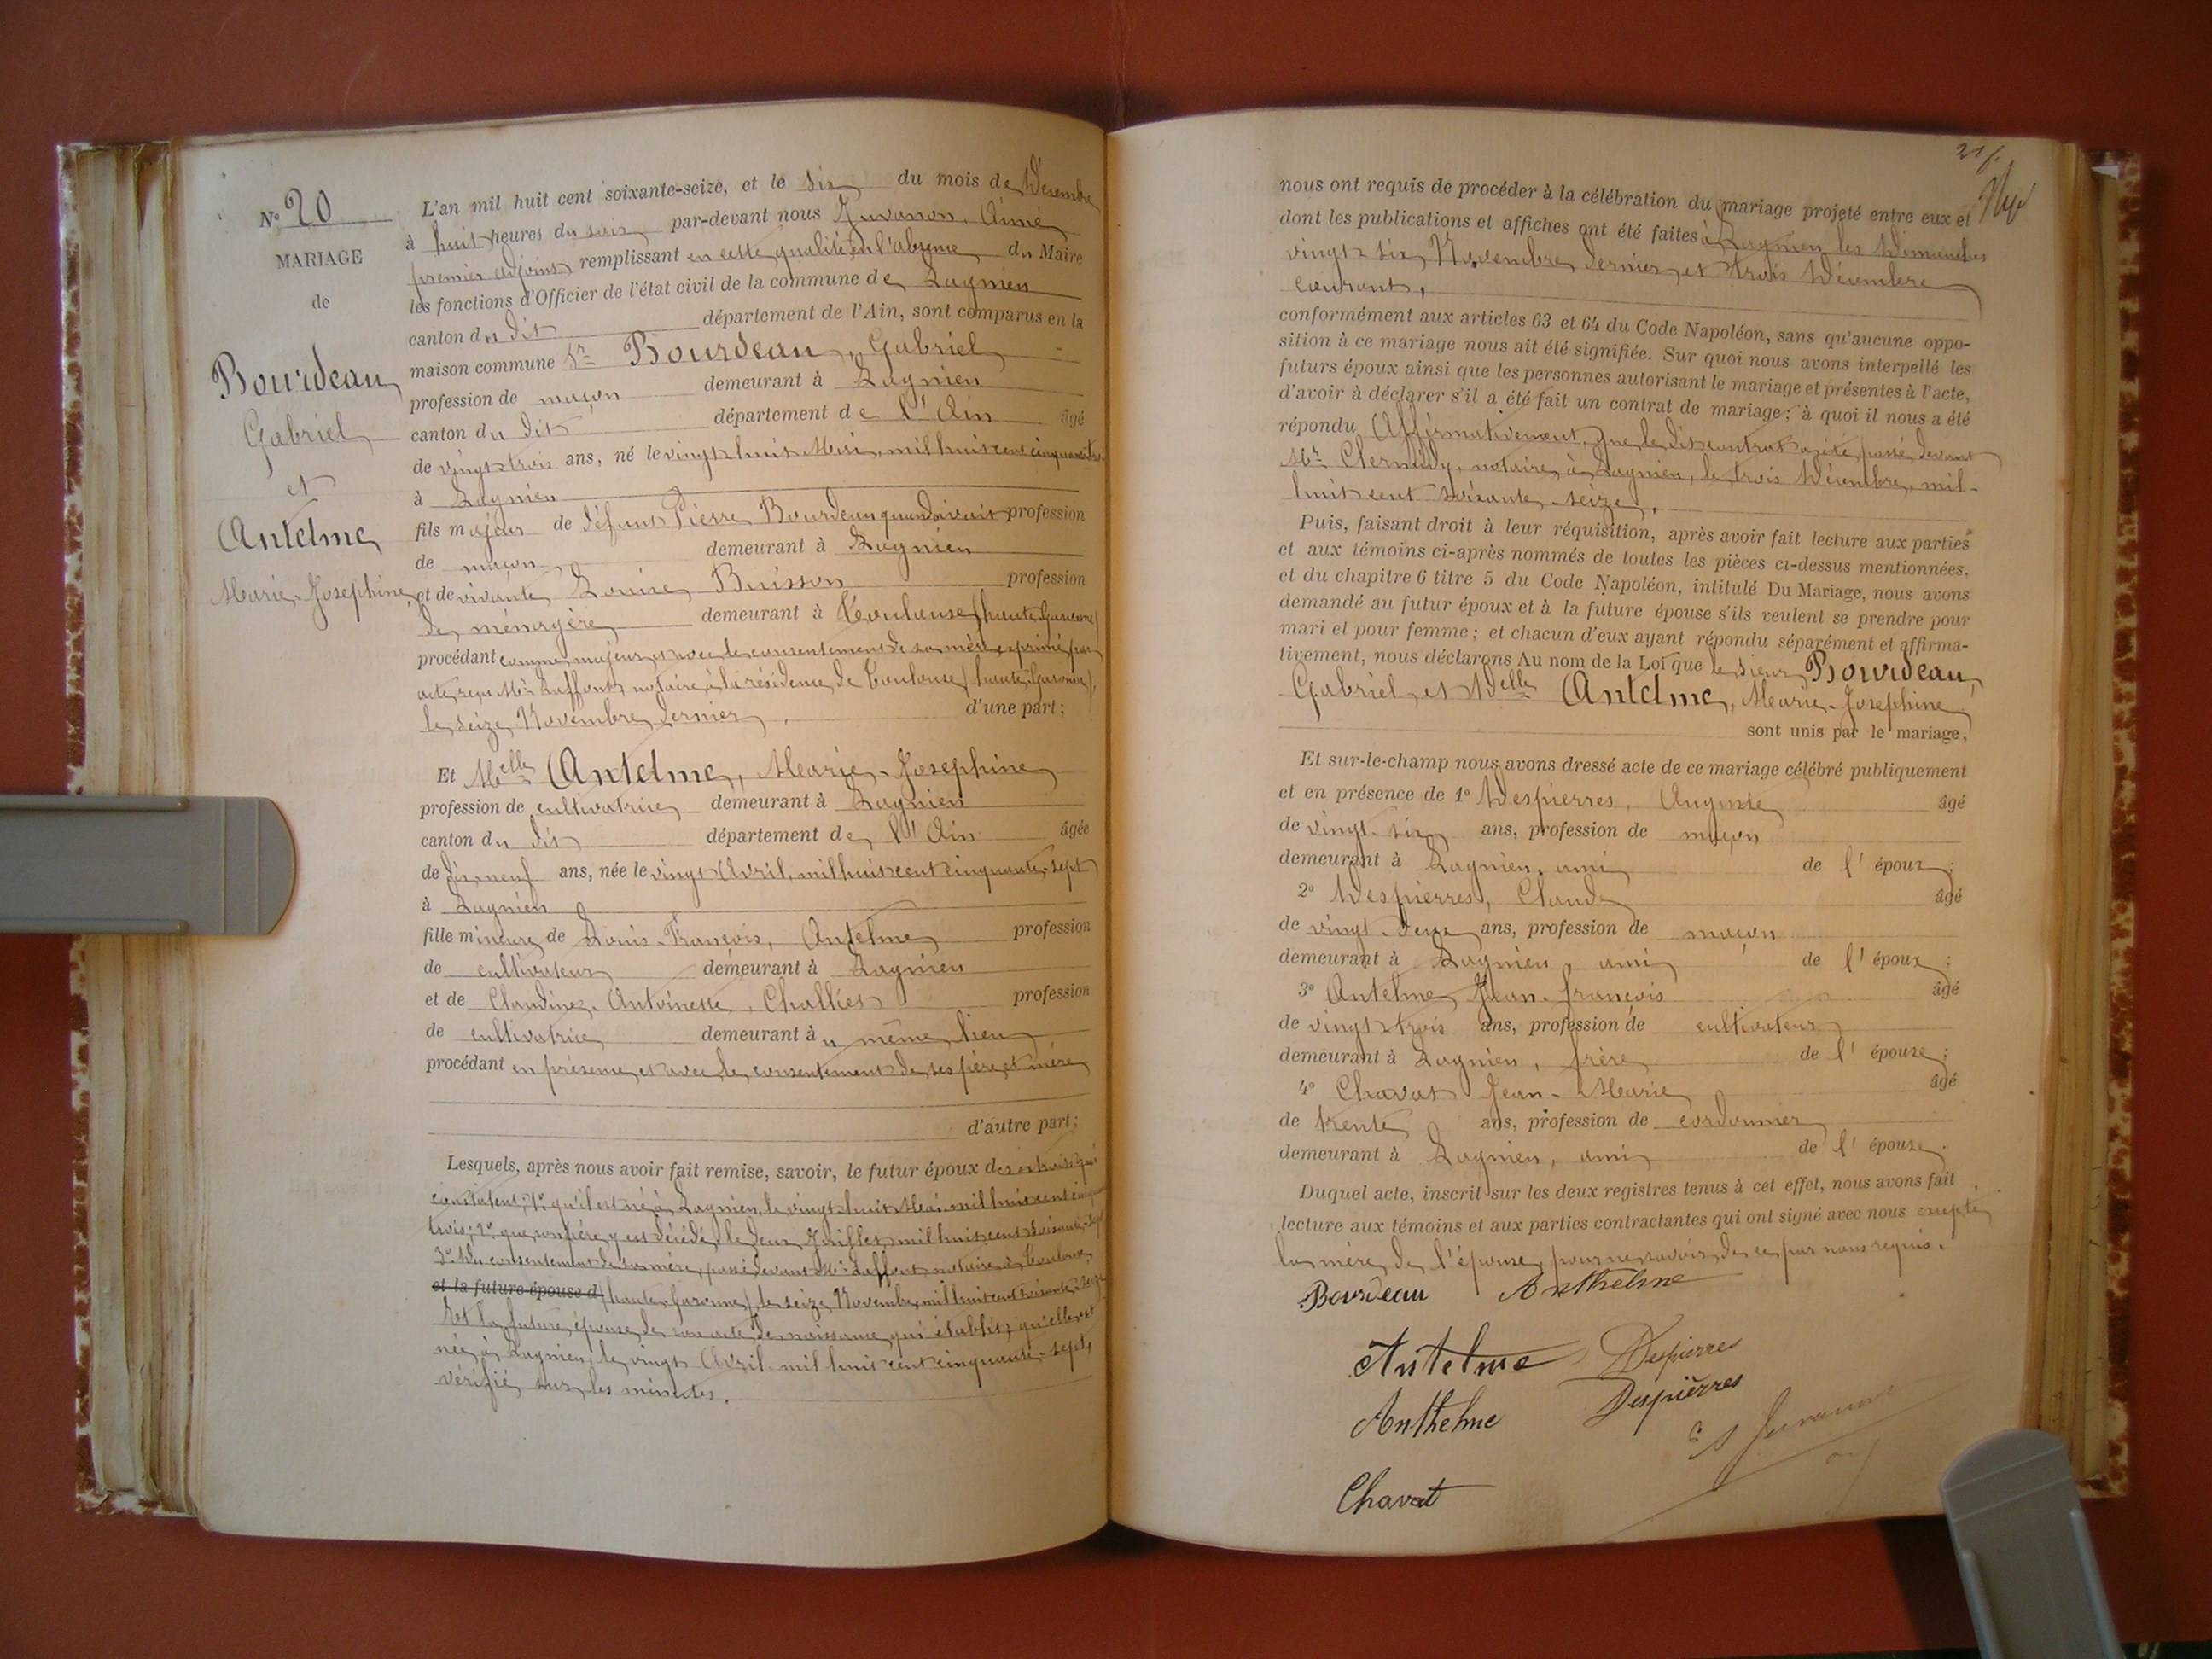 N° 20
MARIAGE
de
Bourdeau
Gabriel
et
Antelme
Marie-Josephine
L'an mil huit cent soixante-seize, et le six du mois de Décembre
à huit heures du soir par-devant nous Juvanon, Aimé
premier adjoint remplissant en cette qualité en l'absence du Maire
les fonctions d'Officier de l'état civil de la commune de Lagnieu
canton du dit département de l'Ain, sont comparus en la
maison commune Sr Bourdeau, Gabriel
profession de maçon demeurant à Lagnieu
canton du dit département de l'Ain âgé
de vingt trois ans, né le vingt huit Mai, mil huit cent cinquante trois
à Lagnieu
fils majeur de défunt Pierre Bourdeau quand vivait profession
de maçon demeurant à Lagnieu
et de vivante Louise Buisson profession
de ménagère demeurant à Toulouse (haute Garonne)
procédant comme majeur et avec le consentement de sa mère exprimé par
acte reçu Me Laffont notaire à la résidence de Toulouse (haute Garonne),
le seize Novembre dernier, d'une part;
Et Melle Antelme, Marie-Josephine
profession de cultivatrice demeurant à Lagnieu
canton du dit département de l'Ain âgée
de dix-neuf ans, née le vingt Avril, mil huit cent cinquante-sept
à Lagnieu
fille mineure de Louis-François, Antelme profession
de cultivateur demeurant à Lagnieu
et de Claudine-Antoinette, Challies profession
de cultivatrice demeurant au même lieu
procédant en présence et avec le consentement de ses père et mère
d'autre part;
Lesquels, après nous avoir fait remise, savoir, le futur époux des extraits qui
constatent; 1° qu'il est né à Lagnieu, le vingt huit Mai mil huit cent cinquante
trois; 2° que son père y est décédé, le deux Juillet mil huit cent soixante-sept
3° Du consentement de sa mère, passé devant Me Laffont notaire à Toulouse
et la future épouse d (haute Garonne) le seize Novembre mil huit cent soixante-seize
Et la future épouse de son acte de naissance, qui établit, qu'elle est
née à Lagnieu, le vingt Avril mil huit cent cinquante-sept,
vérifié sur les minutes.
21
nous ont requis de procéder à la célébration du mariage projeté entre eux et
dont les publications et affiches ont été faites à Lagnieu les Dimanches
vingt six Novembre dernier et trois Décembre
courant,
conformément aux articles 63 et 64 du Code Napoléon, sans qu'aucune oppo-
sition à ce mariage nous ait été signifiée. Sur quoi nous avons interpellé les
futurs époux ainsi que les personnes autorisant le mariage et présentes à l'acte,
d'avoir à déclarer s'il a été fait un contrat de mariage; à quoi il nous a été
répondu Affirmativement, que le dit contrat a été passé devant
Me, notaire à Lagnieu, le trois Décembre, mil-
huit cent soixante-seize.
Puis, faisant droit à leur réquisition, après avoir fait lecture aux parties
et aux témoins ci-après nommés de toutes les pièces ci-dessus mentionnées,
et du chapitre 6 titre 5 du Code Napoléon, intitulé Du Mariage, nous avons
demandé au futur époux et à la future épouse s'ils veulent se prendre pour
mari et pour femme; et chacun d'eux ayant répondu séparément et affirma-
tivement, nous déclarons Au nom de la Loi que le sieur Bourdeau,
Gabriel et Delle Antelme, Marie-Josephine
sont unis par le mariage,
Et sur-le-champ nous avons dressé acte de ce mariage célébré publiquement
et en présence de 1° Despierres, Auguste âgé
de vingt-six ans, profession de maçon
demeurant à Lagnieu, ami de l'époux;
2° Despierres, Claude âgé
de vingt-deux ans, profession de maçon
demeurant à Lagnieu, ami de l'époux;
3° Antelme Jean-françois âgé
de vingt trois ans, profession de cultivateur
demeurant à Lagnieu, frère de l'épouse;
4° Chavat Jean-Marie âgé
de trente ans, profession de cordonnier
demeurant à Lagnieu, ami de l'épouse.
Duquel acte, inscrit sur les deux registres tenus à cet effet, nous avons fait
lecture aux témoins et aux parties contractantes qui ont signé avec nous excepté
la mère de l'épouse, pour ne savoir de ce par nous requis.
Bourdeau Anthelme
Antelme Despierres
Anthelme Despièrres
A Juvanon
Chavat